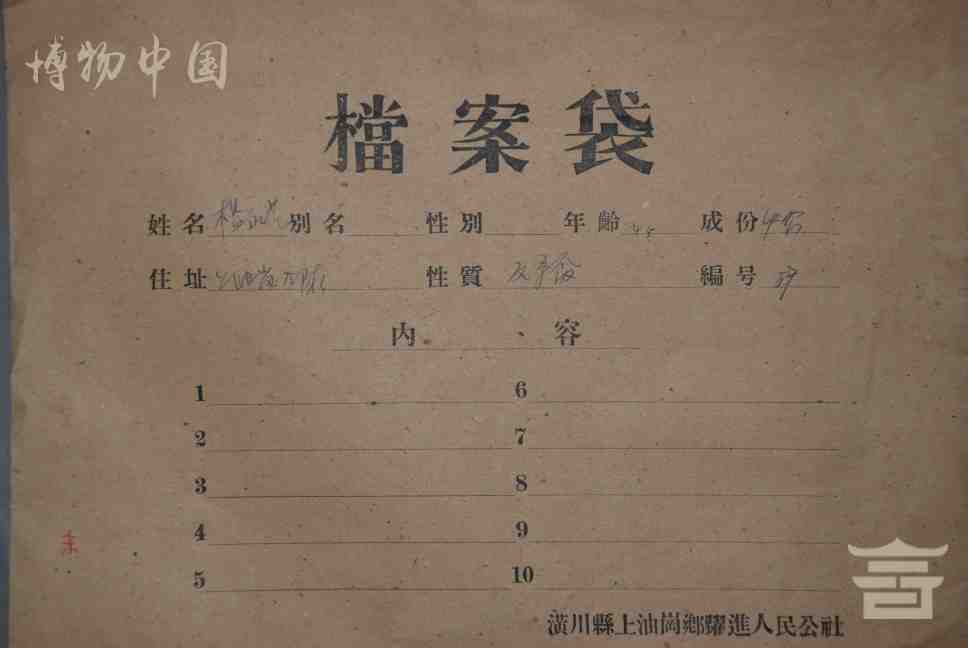 博物中国
檔案袋
姓名 楊 别名 性别 年齡 48 成份
住址 性質 編号
内、容
1 6
2 7
3 8
4 9
5 10
潢川縣上油崗鄉躍進人民公社